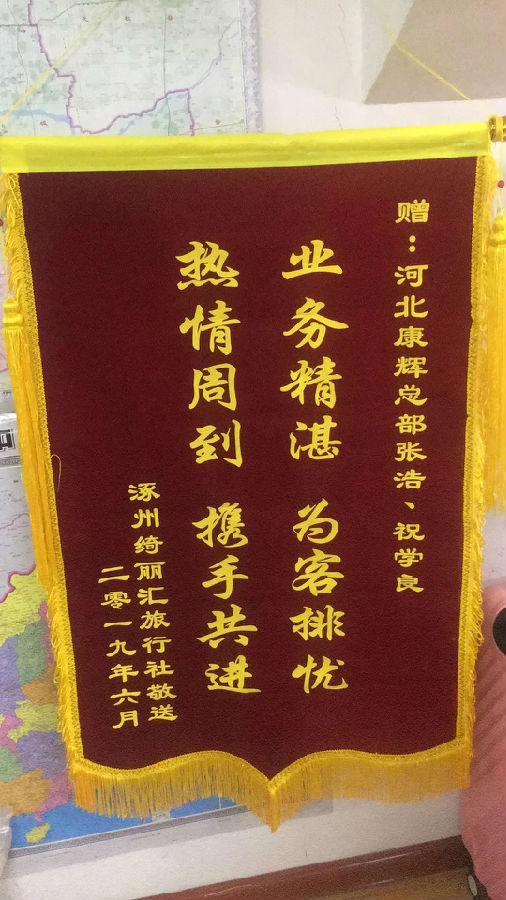 赠：河北康辉总部张浩、祝学良
业务精湛 为客排忧
热情周到 携手共进
涿州绮丽汇旅行社敬送
二零一九年六月